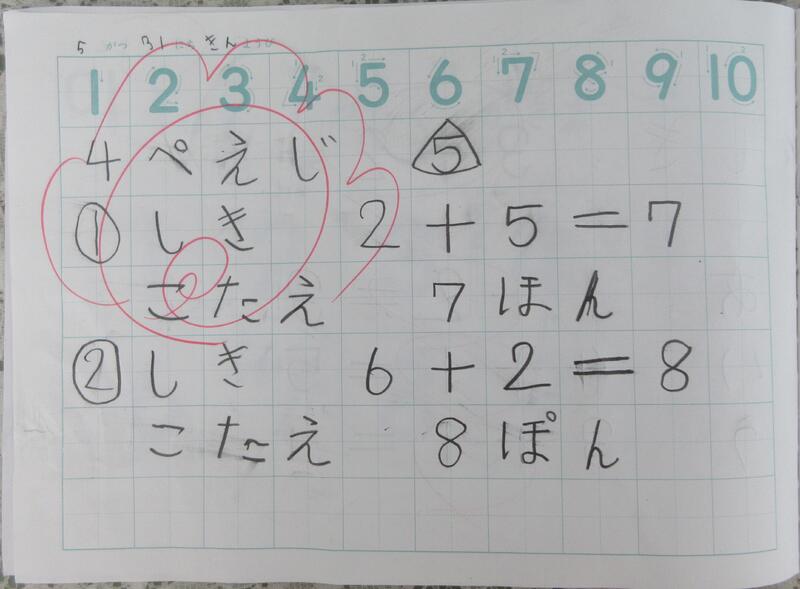 5 がつ 31 にち きんようび
1 2 3 4 5 6 7 8 9 10
4 ぺえじ 5
① しき 2+5=7
こたえ 7ほん
② しき 6+2=8
こたえ 8ぽん